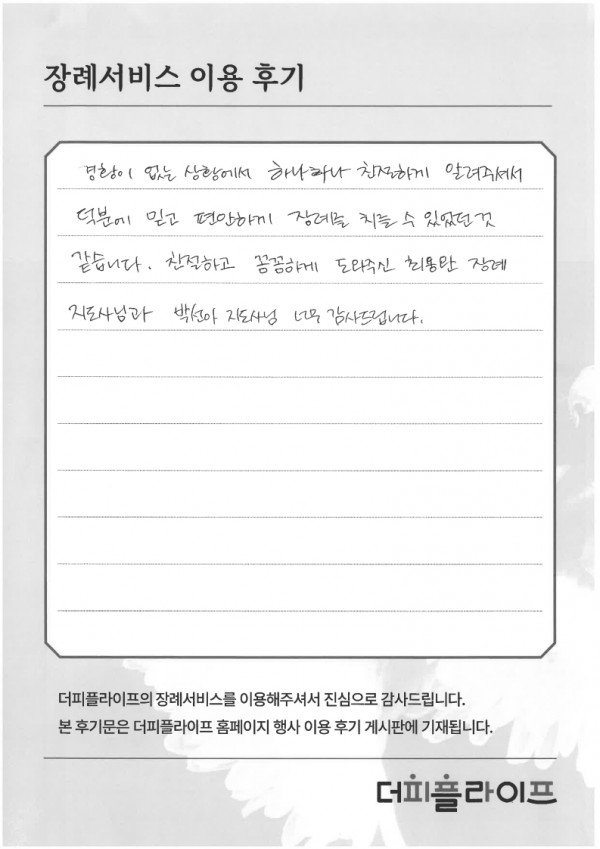 장례서비스 이용 후기
경황이 없는 상황에서 하나하나 친절하게 알려주셔서
덕분에 믿고 편안하게 장례를 치를 수 있었던 것
같습니다. 친절하고 꼼꼼하게 도와주신 최용완 장례
지도사님과 박선아 지도사님 너무 감사드립니다.
더피플라이프의 장례서비스를 이용해주셔서 진심으로 감사드립니다.
본 후기문은 더피플라이프 홈페이지 행사 이용 후기 게시판에 기재됩니다.
더피플라이프